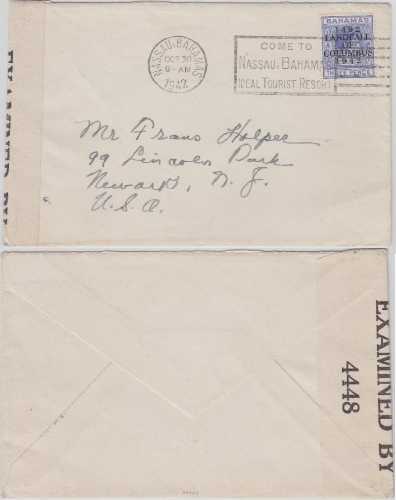 NASSAU·BAHAMAS
OCT 30
9-AM
1942
COME TO
NASSAU, BAHAMAS
IDEAL TOURIST RESORT
BAHAMAS
1492
LANDFALL
OF
COLUMBUS
1942
PENCE
Mr. Frans Holper
99 Lincoln Park
Newark, N. J.
U.S.A.
EXAMINED BY
EXAMINED BY
4448